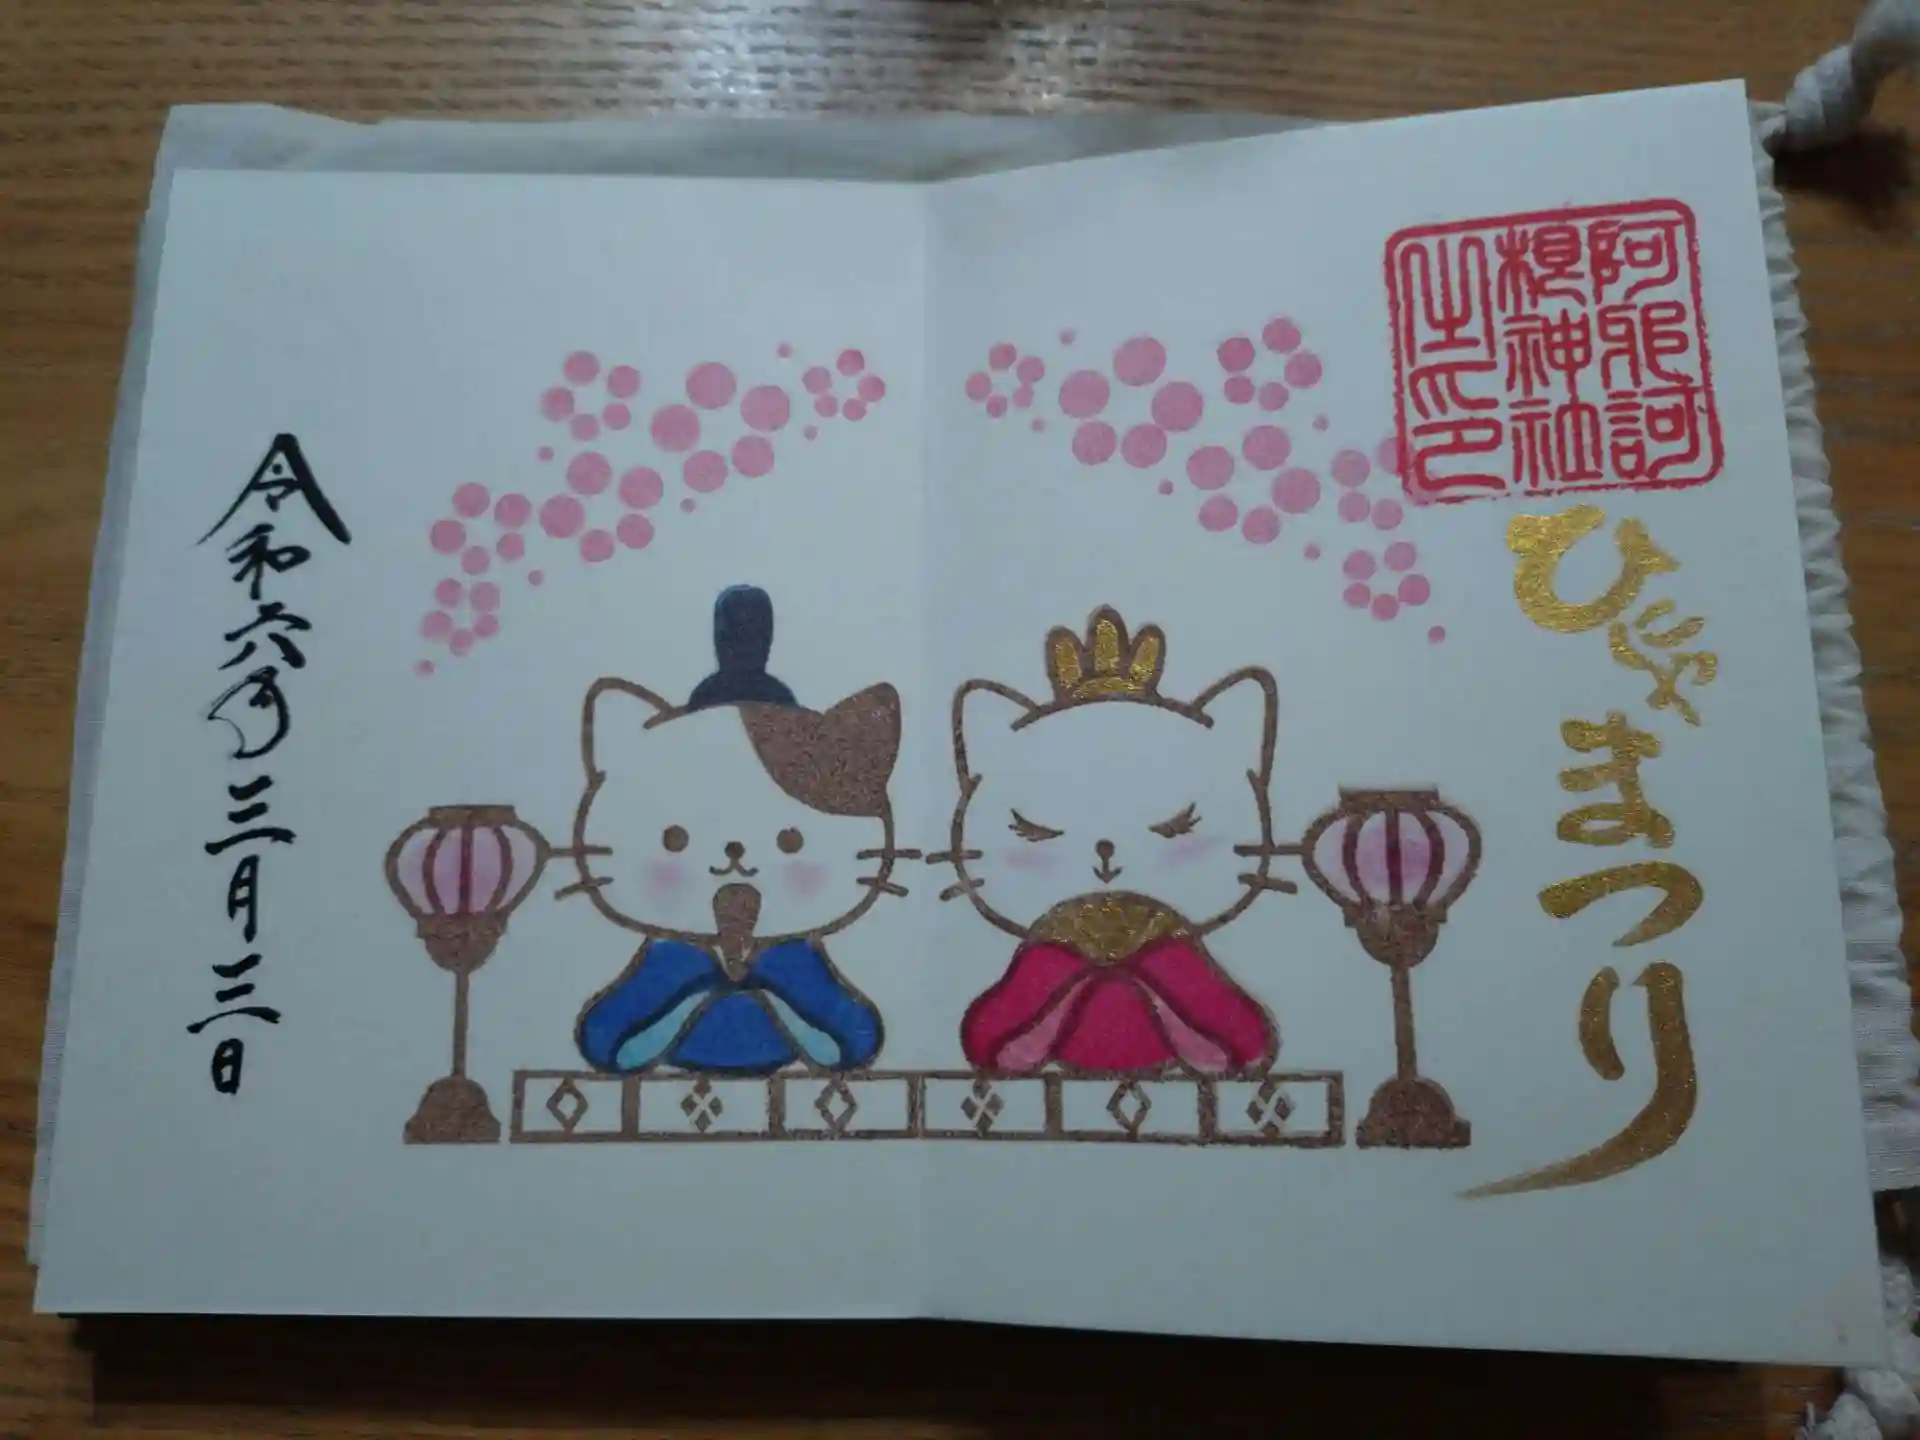 阿邪訶
根神社
之印
ひなまつり
令和六年三月三日